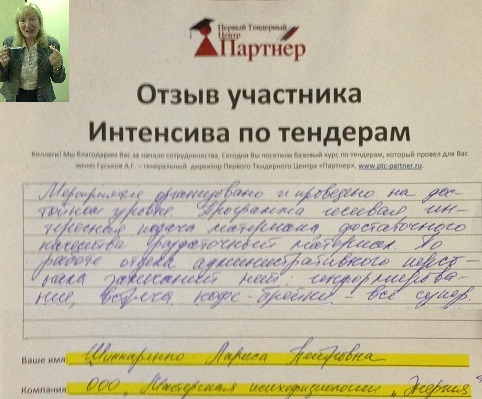 Первый Тендерный
Центр
Партнер
Отзыв участника
Интенсива по тендерам
Коллеги! Мы благодарим Вас за начало сотрудничества. Сегодня Вы посетили базовый курс по тендерам, который провел для Вас
лично Гуськов А.Г. – генеральный директор Первого Тендерного Центра «Партнер», www.ptc-partner.ru.
Мероприятие организовано и проведено на дос-
тойном уровне. Программа живая, ин-
тересная подача материала, достаточного
качества раздаточный материал. По
работе отдела административного персо-
нала замечаний нет. Информирова-
ние, встреча кофе-брейки – все супер.
Ваше имя: Шинкаренко Лариса Петровна
Компания: ООО „Мастерская психофизиологии „Энергия"